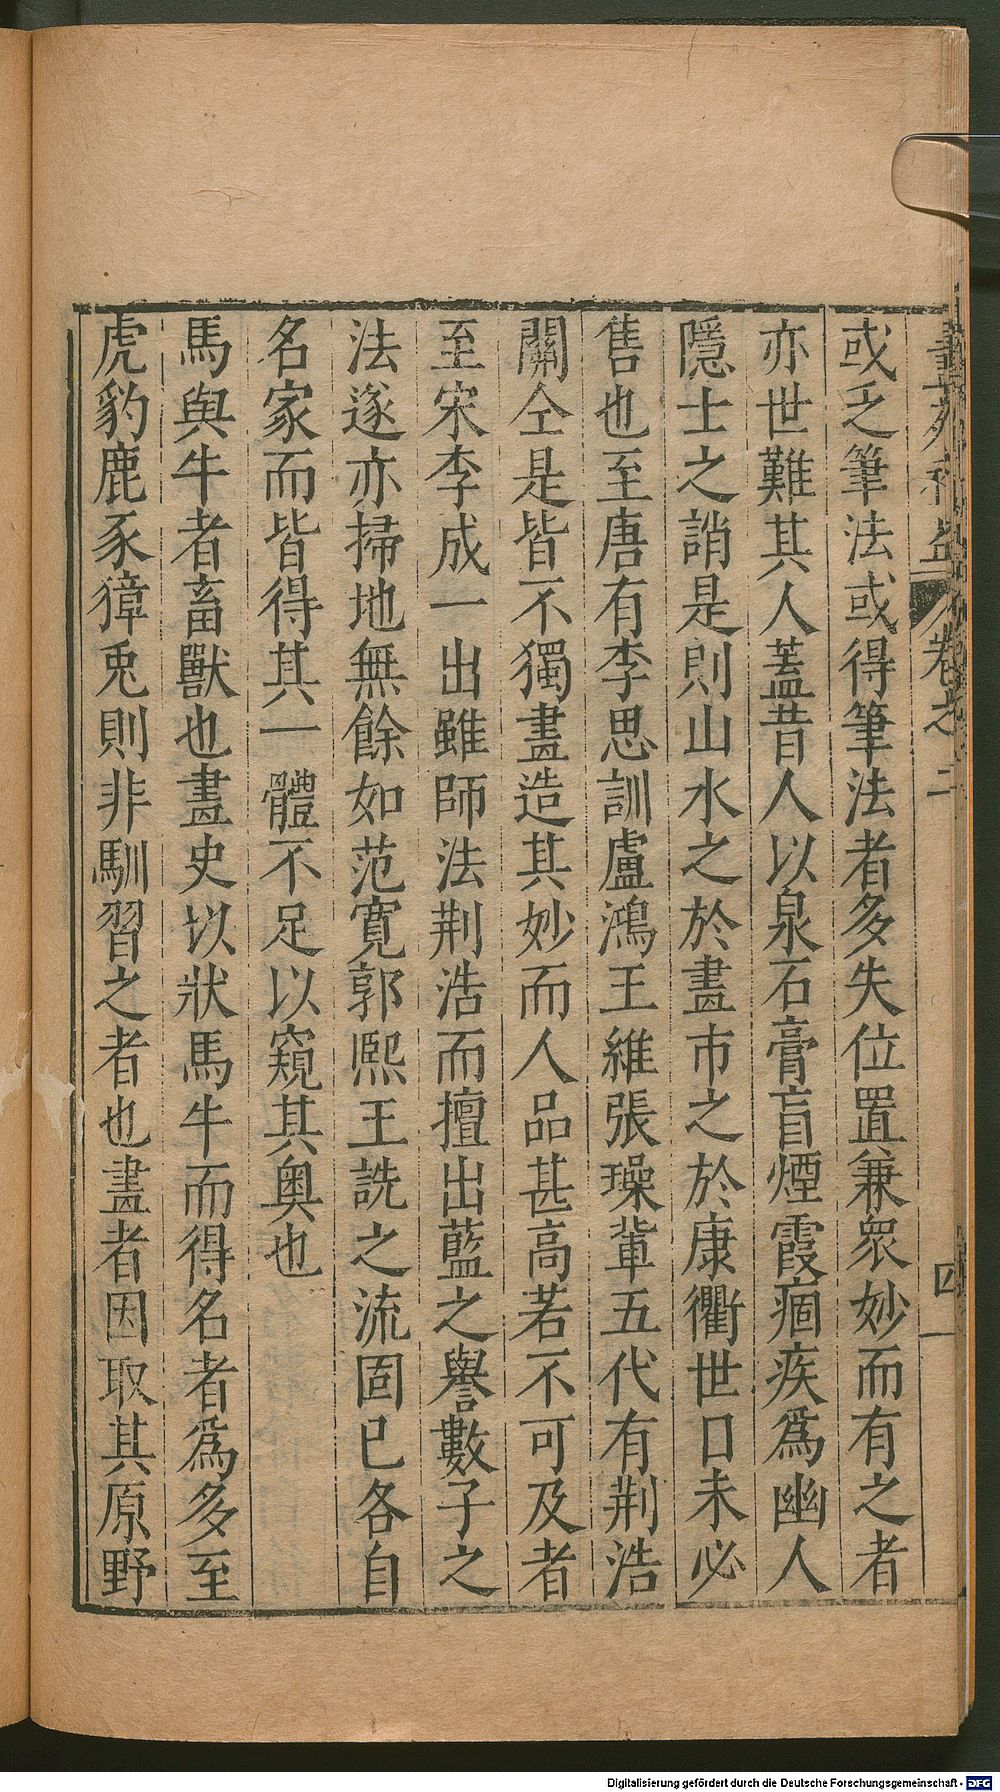 畫苑補益 卷之二 四
或乏筆法或得筆法者多失位置兼衆妙而有之者
亦世難其人蓋昔人以泉石膏盲煙霞痼疾爲幽人
隱士之誚是則山水之於畫市之於康衢世口未必
售也至唐有李思訓盧鴻王維張璪輩五代有荆浩
關仝是皆不獨畫造其妙而人品甚高若不可及者
至宋李成一出雖師法荆浩而擅出藍之譽數子之
法遂亦掃地無餘如范寬郭熙王詵之流固已各自
名家而皆得其一體不足以窺其奥也
馬與牛者畜獸也畫史以狀馬牛而得名者爲多至
虎豹鹿豕獐兎則非馴習之者也畫者因取其原野
Digitalisierung gefördert durch die Deutsche Forschungsgemeinschaft - DFG